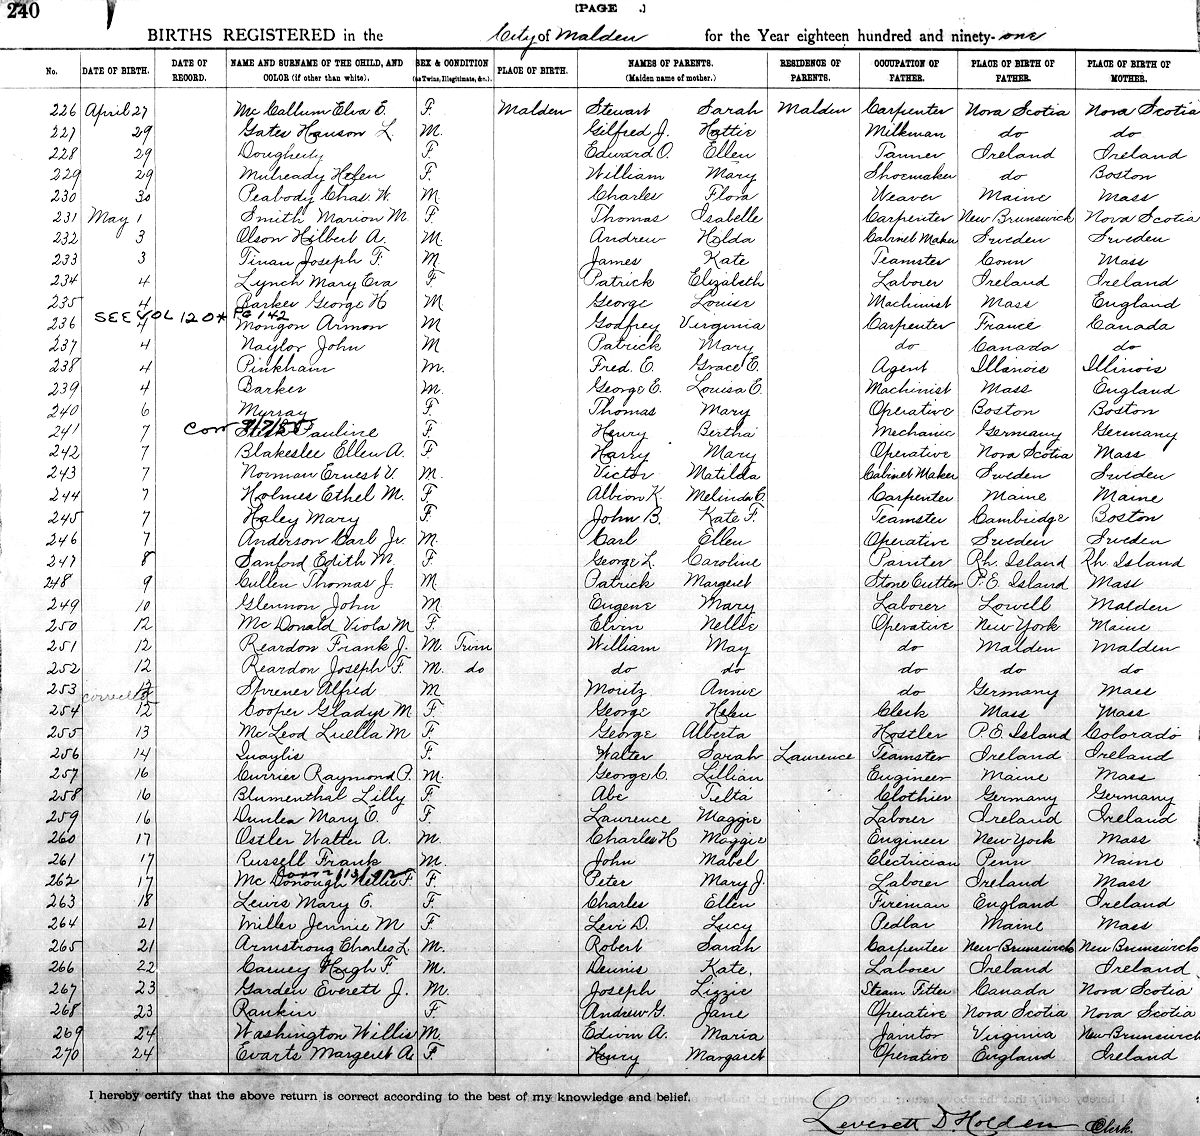 240
[PAGE .]
BIRTHS REGISTERED in the City of Malden for the Year eighteen hundred and ninety-one
No. DATE OF BIRTH. DATE OF RECORD. NAME AND SURNAME OF THE CHILD, AND COLOR (if other than white). SEX & CONDITION (as Twins, Illegitimate, &c.). PLACE OF BIRTH. NAMES OF PARENTS. (Maiden name of mother.) RESIDENCE OF PARENTS. OCCUPATION OF FATHER. PLACE OF BIRTH OF FATHER. PLACE OF BIRTH OF MOTHER.
226 April 27 Mc Callum Elva E. F. Malden Stewart Sarah Malden Carpenter Nova Scotia Nova Scotia
227 29 Gates Hanson L. M. Gilfred J. Hattie Milkman do do
228 29 Dougherty F. Edward O. Ellen Tanner Ireland Ireland
229 29 Mulready Helen F. William Mary Shoemaker do Boston
230 30 Peabody Chas. W. M Charles Flora Weaver Maine Mass
231 May 1 Smith Marion M. F. Thomas Isabelle Carpenter New Brunswick Nova Scotia
232 3 Olson Hilbert A. M. Andrew Hilda Cabinet Maker Sweden Sweden
233 3 Tinan Joseph F. M. James Kate Teamster Conn Mass
234 4 Lynch Mary Eva F Patrick Elizabeth Laborer Ireland Ireland
235 4 Barker George H M George Louise Machinist Mass England
SEE VOL 120* PG 142
236 4 Mongon Armon M Godfrey Virginia Carpenter France Canada
237 4 Naylor John M Patrick Mary do Canada do
238 4 Pinkham M. Fred. E. Grace E. Agent Illinois Illinois
239 4 Barker M. George E. Louisa E. Machinist Mass England
240 6 Murray F. Thomas Mary Operative Boston Boston
241 7 Corr Pauline F. Henry Bertha Mechanic Germany Germany
242 7 Blakeslee Ellen A. F. Harry Mary Operative Nova Scotia Mass
243 7 Norman Ernest V. M. Victor Matilda Cabinet Maker Sweden Sweden
244 7 Holmes Ethel M. F. Albion K. Melinda E. Carpenter Maine Maine
245 7 Haley Mary F. John B. Kate F. Teamster Cambridge Boston
246 7 Anderson Carl Jr. M. Carl Ellen Operative Sweden Sweden
247 8 Sanford Edith M. F. George L. Caroline Painter Rh. Island Rh. Island
248 9 Cullen Thomas J. M Patrick Margaret Stone Cutter P.E. Island Mass
249 10 Glennon John M Eugene Mary Laborer Lowell Malden
250 12 Mc Donald Viola M F. Elvin Nellie Operative New York Maine
251 12 Reardon Frank J. M. Twin William May do Malden Malden
252 12 Reardon Joseph F. M. do do do do do do
253 12 Sprener Alfred M Moritz Annie do Germany Mass
corrected
254 12 Cooper Gladys M F. George Helen Clerk Mass Mass
255 13 Mc Leod Luella M F. George Alberta Hostler P.E. Island Colorado
256 14 Quaylis F. Walter Sarah Lawrence Teamster Ireland Ireland
257 16 Currier Raymond P. M. George C. Lillian Engineer Maine Mass
258 16 Blumenthal Lilly F. Abe Telta Clothier Germany Germany
259 16 Dunlea Mary E. F. Lawrence Maggie Laborer Ireland Ireland
260 17 Ostler Walter A. M. Charles H Maggie Engineer New York Mass
261 17 Russell Frank M. John Mabel Electrician Penn Maine
262 17 Mc Donough Nellie F. F. Peter Mary J. Laborer Ireland Mass
263 18 Lewis Mary E. F. Charles Ellen Fireman England Ireland
264 21 Miller Jennie M F. Levi D. Lucy Pedlar Maine Mass
265 21 Armstrong Charles L. M. Robert Sarah Carpenter New Brunswick New Brunswick
266 22 Carney Hugh F. M. Dennis Kate. Laborer Ireland Ireland
267 23 Garden Everett J. M. Joseph Lizzie Steam Fitter Canada Nova Scotia
268 23 Rankin F Andrew G. Jane Operative Nova Scotia Nova Scotia
269 24 Washington Willis M. Edwin A. Maria Janitor Virginia New Brunswick
270 24 Evarts Margaret A. F. Henry Margaret Operative England Ireland
I hereby certify that the above return is correct according to the best of my knowledge and belief.
Leverett D. Holden Clerk.